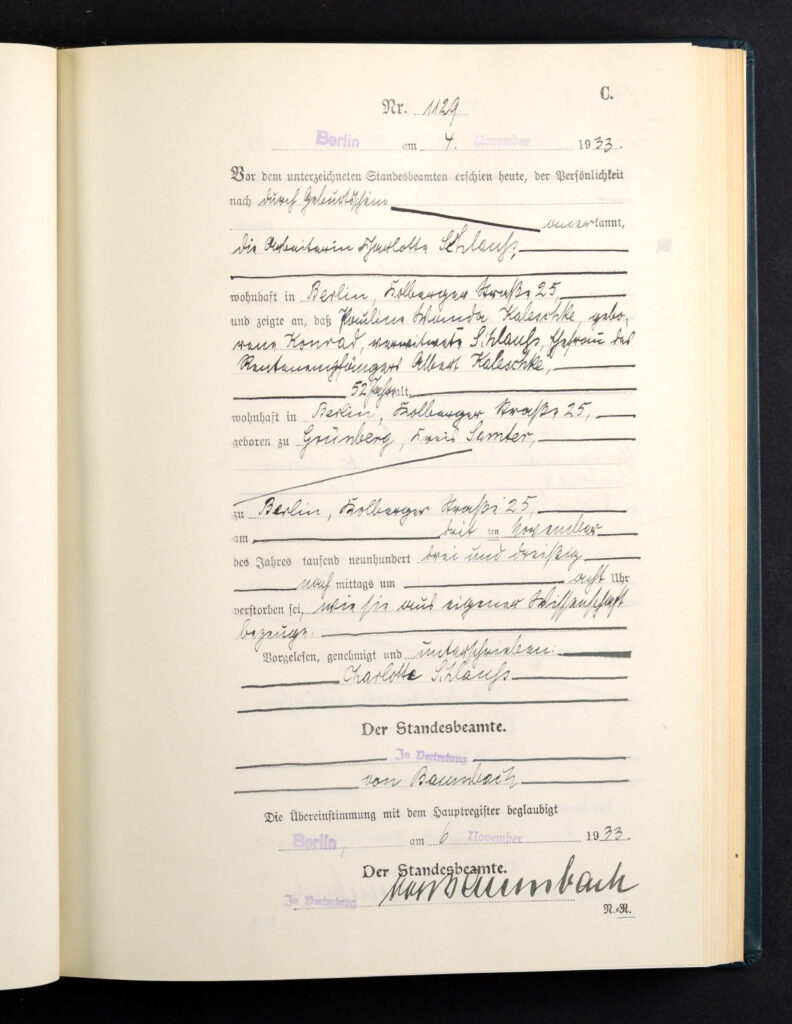 C.
Nr. 1129
Berlin am 4. November 1933.
Vor dem unterzeichneten Standesbeamten erschien heute, der Persönlichkeit
nach durch Geburtsschein
anerkannt,
die Arbeiterin Charlotte Schlauss,
wohnhaft in Berlin, Kolberger Straße 25,
und zeigte an, daß Pauline Wanda Kaleschke, gebo„
rene Konrad, verwitwete Schlauss, Ehefrau des
Rentenempfängers Albert Kaleschke,
52 Jahre alt,
wohnhaft in Berlin, Kolberger Straße 25,
geboren zu Grünberg, Kreis Samter,
zu Berlin, Kolberger Straße 25,
am dritten November
des Jahres tausend neunhundert drei und dreißig
nachmittags um acht Uhr
verstorben sei, wie sie aus eigener Wissenschaft
bezeuge.
Vorgelesen, genehmigt und unterschrieben:
Charlotte Schlauss
Der Standesbeamte.
In Vertretung
von Baumbach
Die Übereinstimmung mit dem Hauptregister beglaubigt
Berlin, am 6 November 1933.
Der Standesbeamte.
In Vertretung von Baumbach
N.-R.